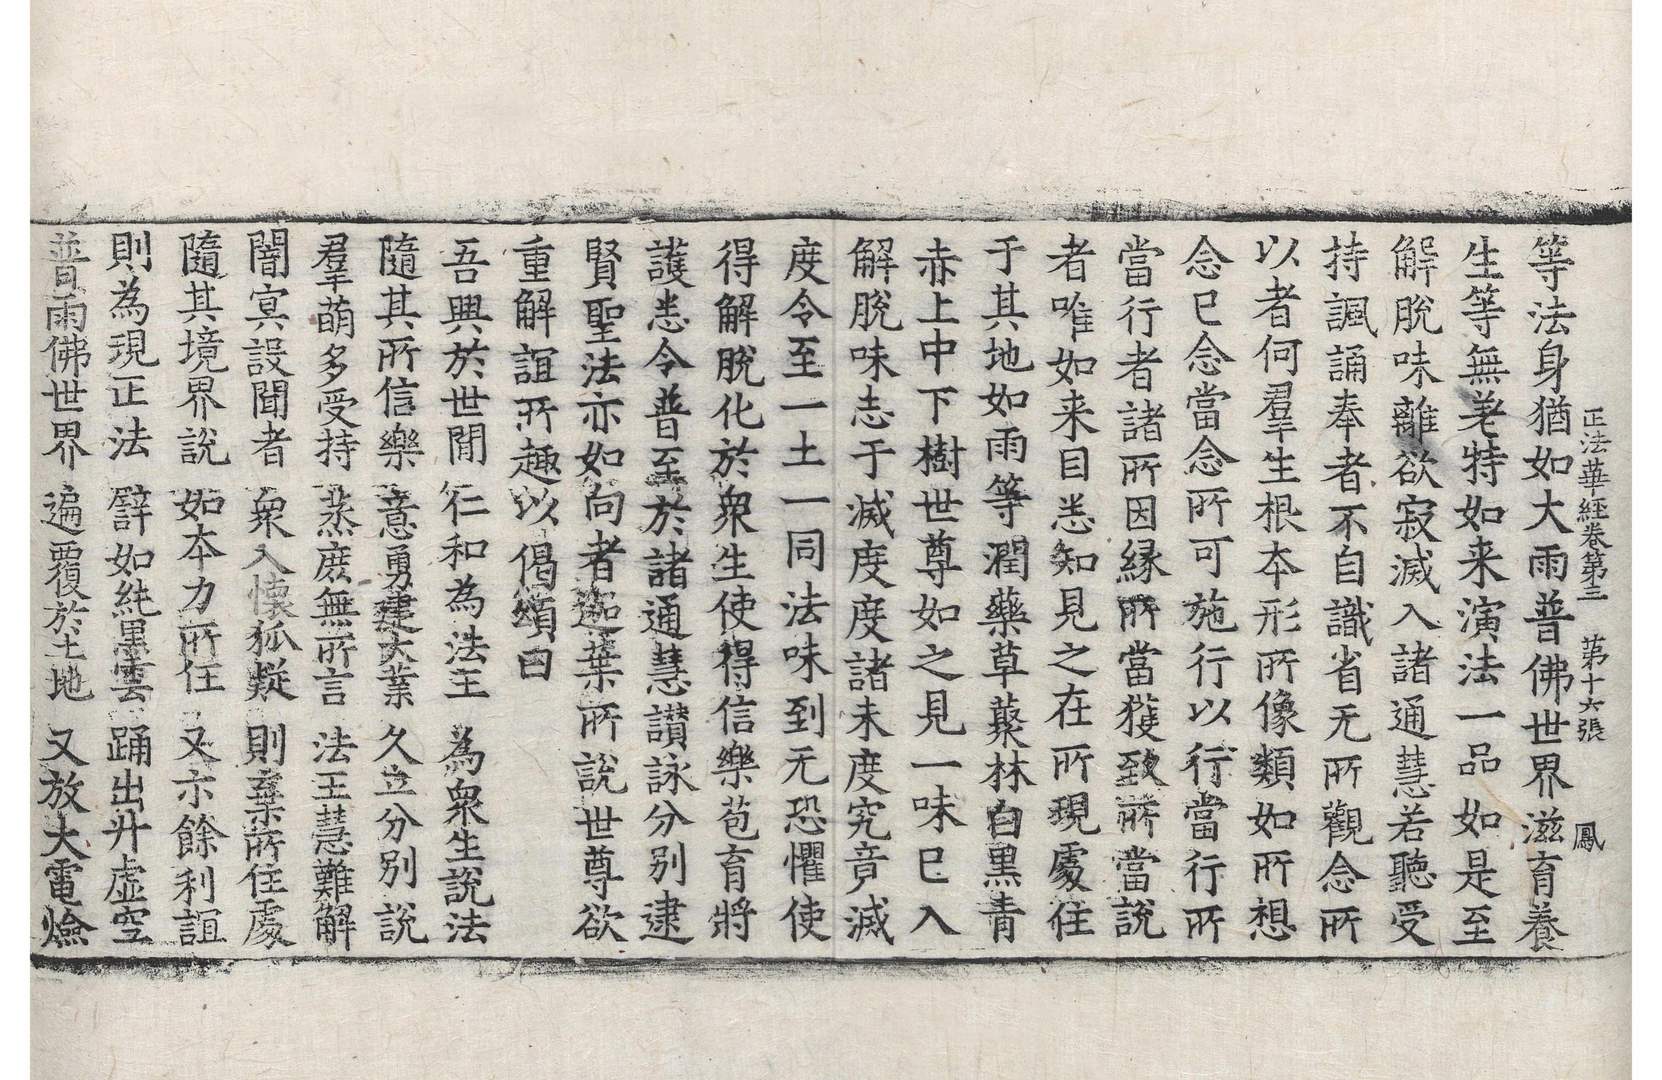 正法華經卷第三　第十六張　鳳
等法身猶如大雨普佛世界滋育養
生等無差特如来演法一品如是至
解脫味離欲寂滅入諸通慧若聽受
持諷誦奉者不自識省无所觀念所
以者何羣生根本形所像類如所想
念已念當念所可施行以行當行所
當行者諸所因緣所當獲致所當說
者唯如来目悉知見之在所現處住
于其地如雨等潤藥草藂林白黒青
赤上中下樹世尊如之見一味已入
解脫味志于滅度度諸未度究竟滅
度令至一土一同法味到无恐懼使
得解脫化於衆生使得信樂苞育將
護悉令普至於諸通慧讃詠分别逮
賢聖法亦如向者迦葉所說世尊欲
重解誼所趣以偈頌曰
吾興於世閒　仁和為法王　為衆生說法
隨其所信樂　意勇建大業　久立分别說
羣萌多受持　蒸庶無所言　法王慧難解
闇冥設聞者　衆入懷狐疑　則棄所住處
隨其境界說　如本力所任　又亦餘利誼
則為現正法　譬如純黒雲　踊出升虚空
普雨佛世界　遍覆於土地　又放大電焰